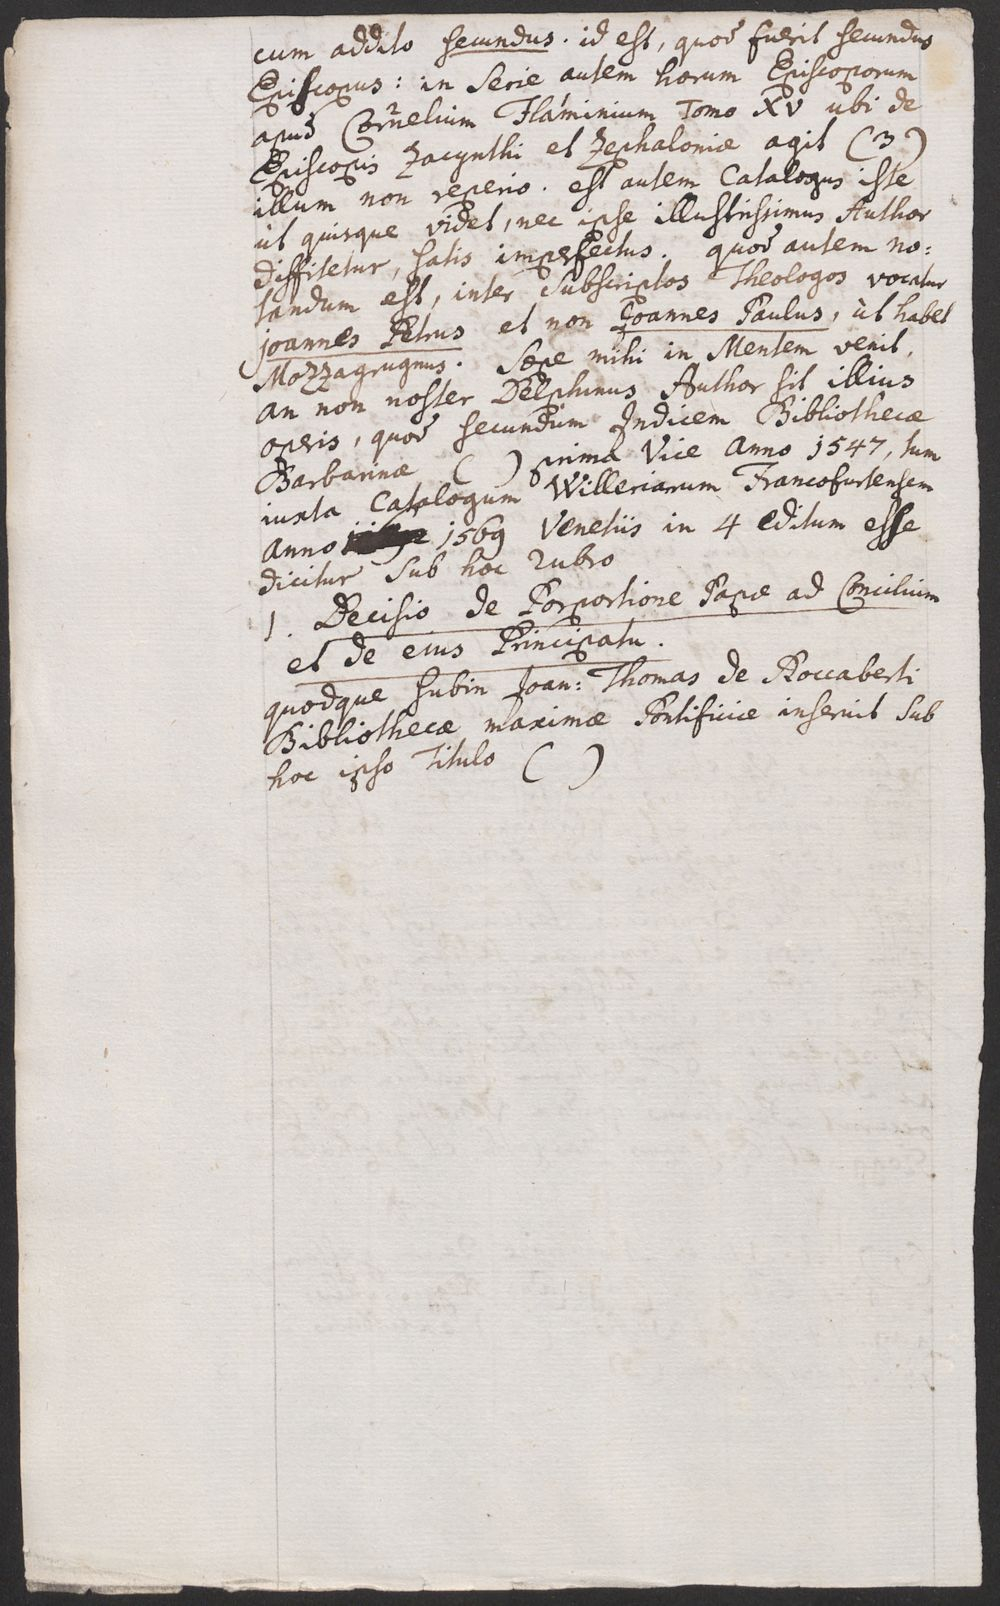 cum addito secundus. id est, quod fuerit secundus
Episcopus: in Serie autem horum Episcoporum
apud Cornelium Flaminium Tomo XV ubi de
Episcopis Zacynthi et Zephaloniæ agit (3)
illum non reperio. est autem Catalogus iste
ut quisque videt, nec ipse illustrissimus Author
diffitetur, satis imperfectus. quod autem no:
tandum est, inter Subscriptos Theologos vocatur
joannes Petrus et non Joannes Paulus, ùt habet
Mozzagrugnus. Sæpe mihi in Mentem venit,
an non noster Delphinus Author sit illius
operis, quod secundum Indicem Bibliothecæ
Barbarinæ ( ) prima Vice Anno 1547, tum
iuxta Catalogum Willerianum Francofurtensem
anno 1569 Venetiis in 4 editum esse
dicitur sub hoc rubro
1. Decisio de Porportione Papæ ad Concilium
et de eius Principatu.
quodque subin Joan: Thomas de Roccaberti
Bibliothecæ maximæ Pontificiæ inseruit sub
hoc ipso Titulo ( )